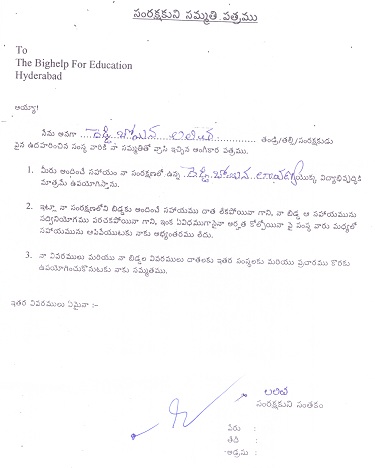 సంరక్షకుని సమ్మతి పత్రము
To
The Bighelp For Education
Hyderabad
అయ్యా!
నేను అనగా రెడ్డి లలిత తండ్రి/తల్లి/సంరక్షకుడు
పైన ఉదహరించిన సంస్థ వారికి నా సమ్మతితో వ్రాసి ఇచ్చిన అంగీకార పత్రము.
1. మీరు అందించే సహాయం నా సంరక్షణలో ఉన్న రెడ్డి యొక్క విద్యాభివృద్ధికి
మాత్రమే ఉపయోగిస్తాను.
2. ఇట్లా నా సంరక్షణలోని బిడ్డకు అందించే సహాయము దాత లేకపోయినా గాని, నా బిడ్డ ఆ సహాయమును
సద్వినియోగము పరచకపోయినా గాని, ఇంక ఏవిధముగానైనా అర్హత కోల్పోయినా పై సంస్థ వారు మధ్యలో
సహాయమును ఆపివేయుటకు నాకు అభ్యంతరము లేదు.
3. నా వివరములు మరియు నా బిడ్డల వివరములు దాతలకు ఇతర సంస్థలకు మరియు ప్రచారము కొరకు
ఉపయోగించుకొనుటకు నాకు సమ్మతము.
ఇతర వివరములు ఏమైనా :-
లలిత
సంరక్షకుని సంతకం
పేరు :
తేది :
అడ్రసు :